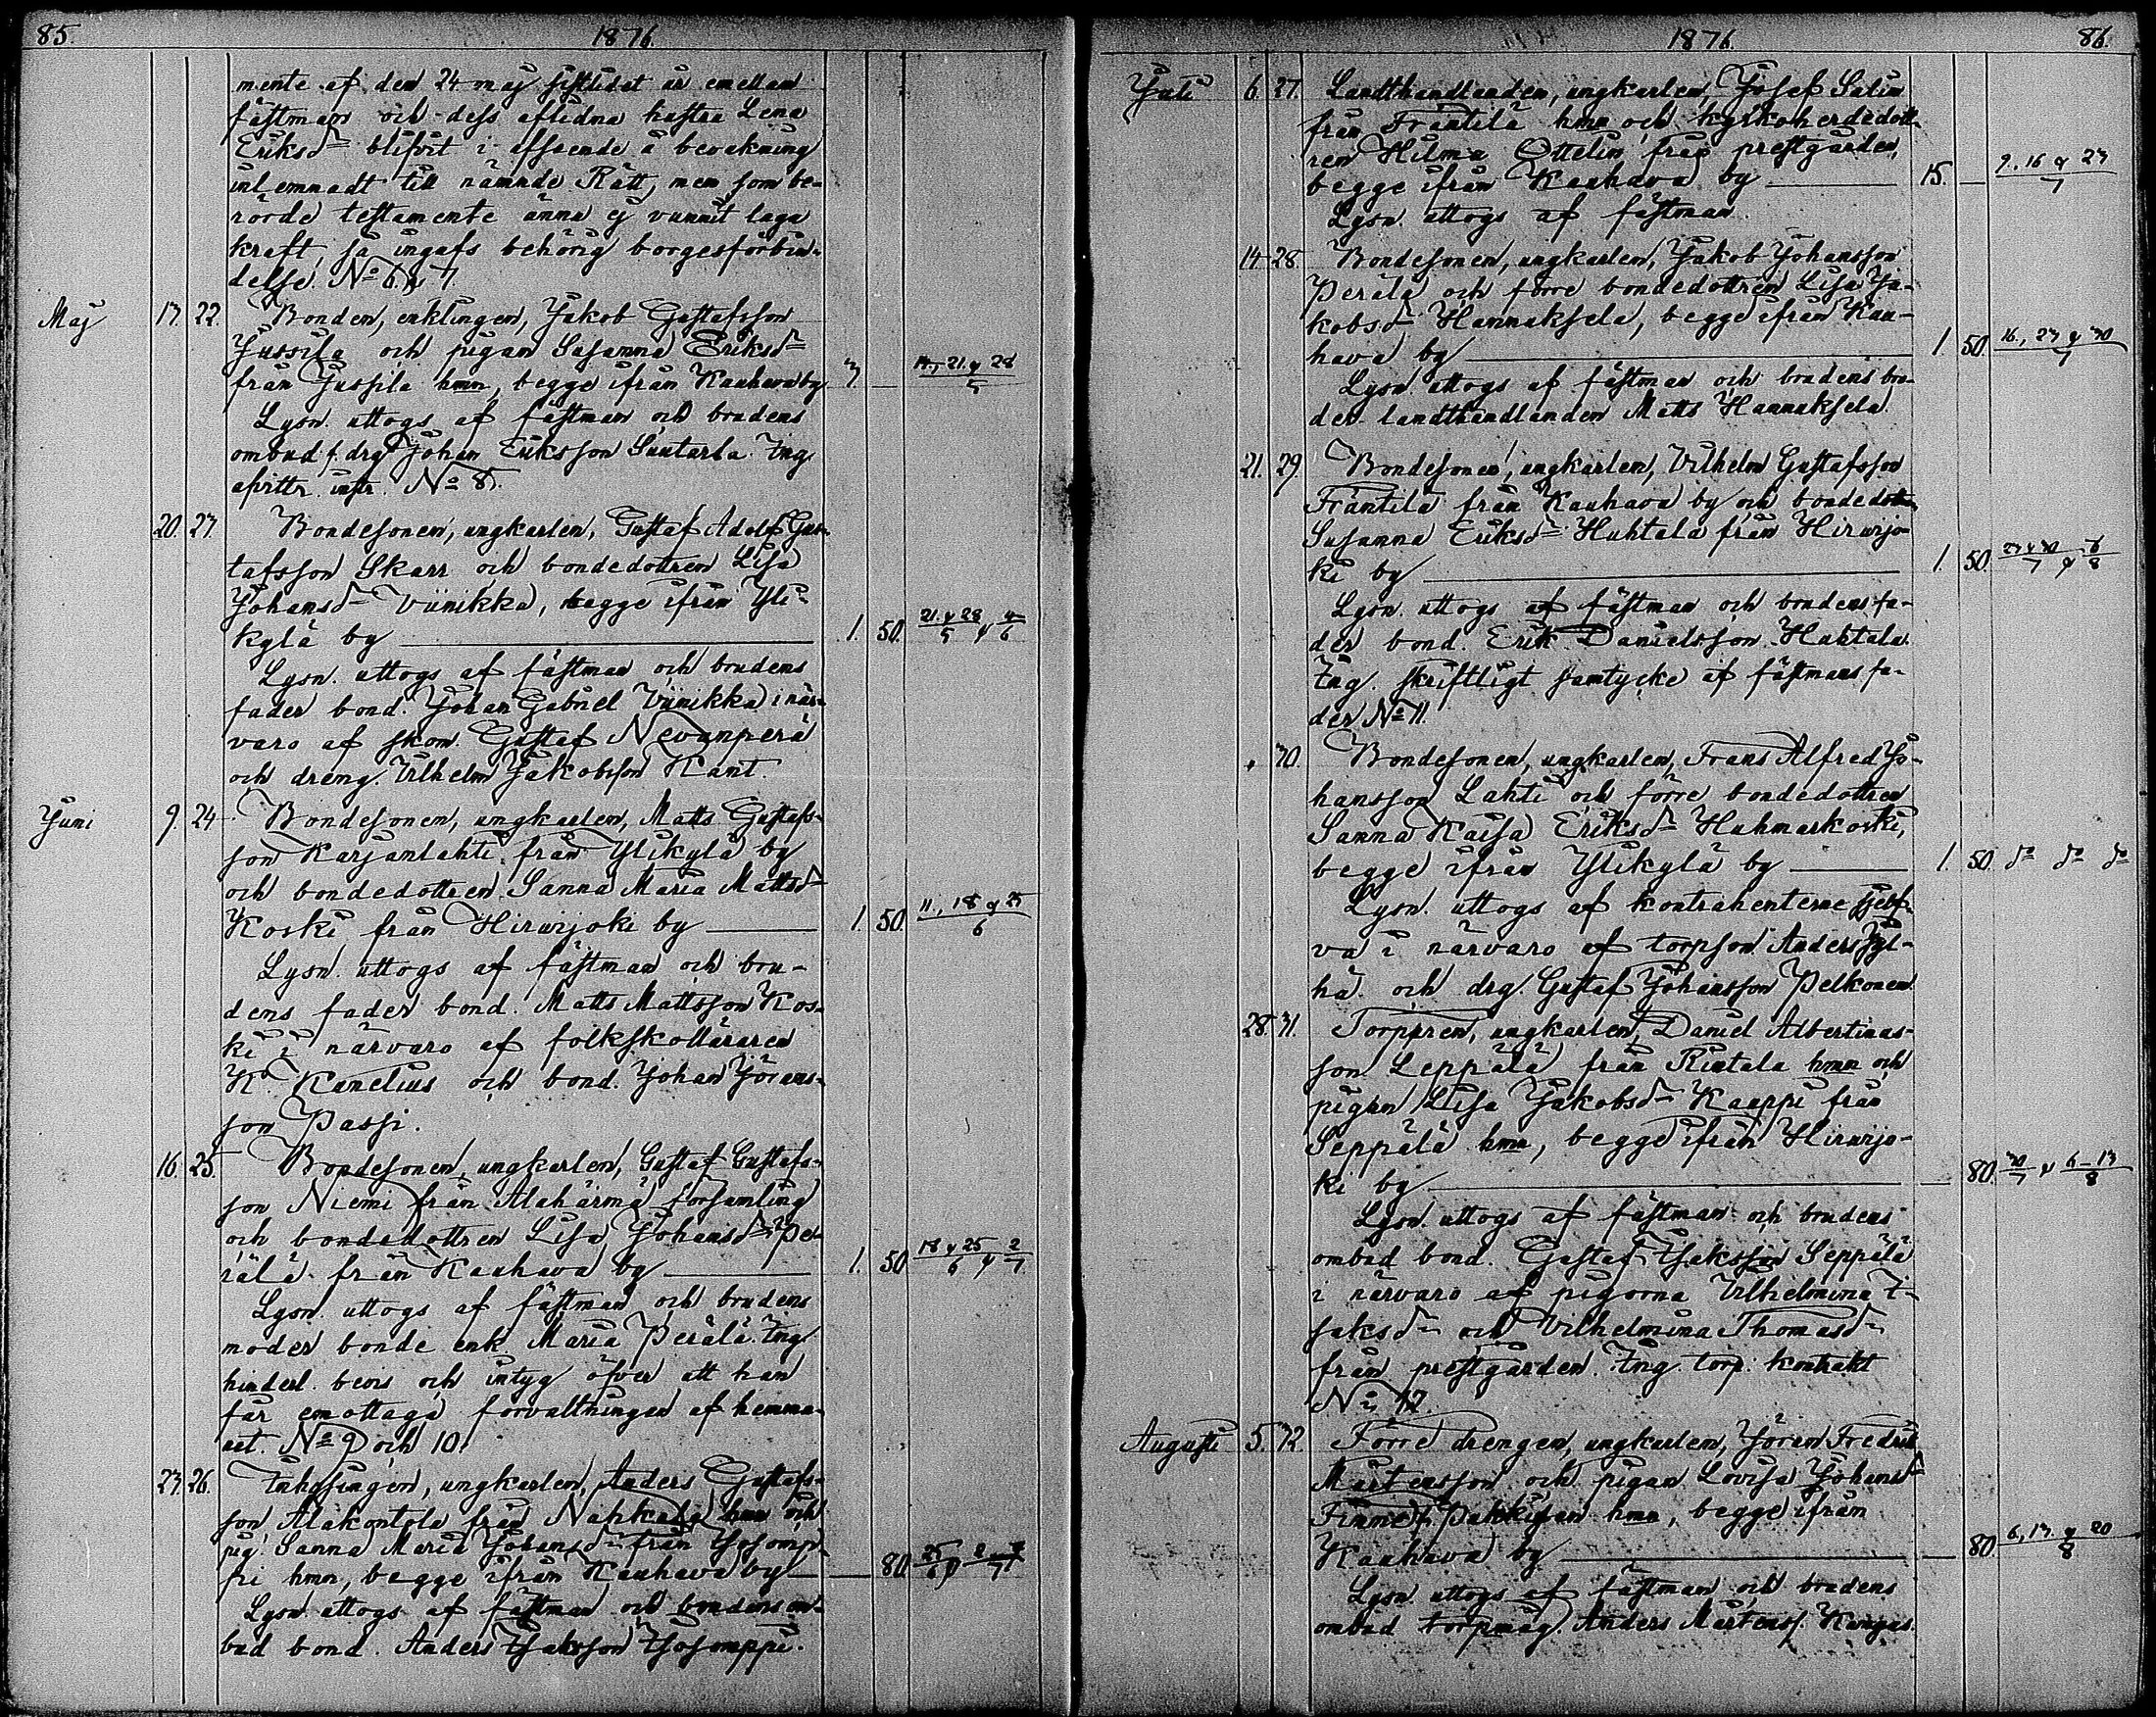 85. 1876.
mente af den 24 maj sistlidet år emellan
fästman och dess aflidna hustru Lena
Eriksd:r blifvit i afseende å bevakning
inlemnadt till nämnde Rätt, men som be-
rörde testamente ännu ej vunnit laga
kraft, så ingafs behörig borgesförbin-
delse. No 6 & 7.
Maj 13. 22. Bonden, enklingen, Jakob Gustafsson
Jussila och pigan Susanna Eriksd:r
från Jussila hmn, begge ifrån Kauhava by 3. — 14., 21. & 28/5
Lysn. uttogs af fästman och brudens
ombud f. drg Johan Eriksson Suutarla. Ing.
afvittr. instr. No 8.
20. 23. Bondesonen, ungkarlen, Gustaf Adolf Gus-
tafsson Skarr och bondedottren Lisa
Johansd:r Viinikka, begge ifrån Yli-
kylä by 1. 50. 21. & 28/5 & 4/6
Lysn. uttogs af fästman och brudens
fader bond. Johan Gabriel Viinikka i när-
varo af skom. Gustaf Nevanperä
och dreng. Vilhelm Jakobsson Kant.
Juni 9. 24. Bondesonen, ungkarlen, Matts Gustafs-
son Karjanlahti från Ylikylä by
och bondedottren Sanna Maria Mattsd:r
Koski från Hirvijoki by 1. 50. 11., 18 & 25/6
Lysn. uttogs af fästman och bru-
dens fader bond. Matts Mattsson Kos-
ki i närvaro af folkskolläraren
K. Kanelius och bond. Johan Jörans-
son Passi.
16. 25. Bondesonen, ungkarlen, Gustaf Gustafs-
son Niemi från Alahärmä församling
och bondedottren Lisa Johansd:r Pe-
rälä från Kauhava by 1. 50. 18 & 25/6 & 2/7
Lysn. uttogs af fästman och brudens
moder bonde enk. Maria Perälä. Ing.
hinderl. bevis och intyg öfver att han
får emottaga förvaltningen af hemma-
net. No 9 och 10.
23. 26. Inhysingen, ungkarlen, Anders Gustafs-
son Alakontola från Nahkala hmn och
pig. Sanna Maria Johansd:r från Isosomp-
pi hmn, begge ifrån Kauhava by — 80. 25/6 & 2–9/7
Lysn. uttogs af fästman och brudens om-
bud bond. Anders Isaksson Isosomppi.
1876. 86.
Juli 6. 27. Landthandlanden, ungkarlen, Josef Salin
från Frantila hmn och kyrkoherdedott-
ren Hilma Ottelin från prestgården,
begge ifrån Kauhava by 15. — 9., 16 & 23/7
Lysn. uttogs af fästman.
14. 28. Bondesonen, ungkarlen, Jakob Johansson
Perälä och förre bondedottren Lisa Ja-
kobsd:r Hannuksela, begge ifrån Kau-
hava by 1. 50. 16., 23 & 30/7
Lysn. uttogs af fästman och brudens bro-
der landthandlanden Matts Hannuksela.
21. 29. Bondesonen, ungkarlen, Vilhelm Gustafsson
Frantila från Kauhava by och bondedottr.
Susanna Eriksd:r Huhtala från Hirvijo-
ki by 1. 50. 23 & 30/7 & 6/8
Lysn. uttogs af fästman och brudens fa-
der bond. Erik Danielsson Huhtala.
Ing. skriftligt samtycke af fästmans fa-
der No 11.
„ 30. Bondesonen, ungkarlen, Frans Alfred Jo-
hansson Lahti och förre bondedottren
Sanna Kaisa Eriksd:r Huhmarkoski,
begge ifrån Ylikylä by 1. 50. d:o d:o d:o
Lysn. uttogs af kontrahenterne sjelf-
va i närvaro af torpson Anders Jyl-
hä och drg. Gustaf Johansson Pelkonen.
28. 31. Torparen, ungkarlen, Daniel Albertinas-
son Leppälä från Rintala hmn och
pigan Lisa Jakobsd:r Kaappi från
Seppälä hmn, begge ifrån Hirvijo-
ki by — 80. 30/7 & 6–13/8
Lysn. uttogs af fästman och brudens
ombud bond. Gustaf Isaksson Seppälä
i närvaro af pigorna Vilhelmina I-
saksd:r och Vilhelmina Thomasd:r
från prestgården. Ing. torp. kontrakt
No 12.
Augusti 5. 32. Förre drengen, ungkarlen, Jöran Fredrik
Mårtensson och pigan Lovisa Johansd:r
Finne f. Pakkisen hmn, begge ifrån
Kauhava by — 80. 6., 13. & 20/8
Lysn. uttogs af fästman och brudens
ombud torpmåg. Anders Mårtenss. Kangas.